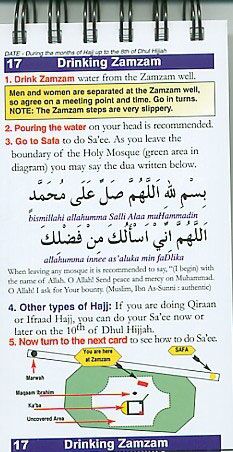 DATE - During the months of Hajj up to the 8th of Dhul Hijjah
17 Drinking Zamzam
1. Drink Zamzam water from the Zamzam well.
Men and women are separated at the Zamzam well,
so agree on a meeting point and time. Go in turns.
NOTE: The Zamzam steps are very slippery.
2. Pouring the water on your head is recommended.
3. Go to Safa to do Sa'ee. As you leave the
boundary of the Holy Mosque (green area in
diagram) you may say the dua written below.
بِسْمِ للهِ اَللَّهُمَّ صَلِّ عَلَى مُحَمَّدٍ
bismillahi allahumma Salli Alaa muHammadin
اَللَّهُمَّ إِنِّي أَسْأَلُكَ مِنْ فَضْلِكَ
allahumma innee as'aluka min faDlika
When leaving mosque it is recommended to say, "(I begin) with
the name of Allah. O Allah! Send peace and mercy on Muhammad.
O Allah! I ask for Your bounty. (Muslim, Ibn As-Sunni : authentic)
4. Other types of Hajj: If you are doing Qiraan
or Ifraad Hajj, you can do your Sa'ee now or
later on the 10th of Dhul Hijjah.
5. Now turn to the next card to see how to do Sa'ee.
You are here
at Zamzam
SAFA
Marwah
Maqaam Ibrahim
Ka'ba
Uncovered Area
17 Drinking Zamzam